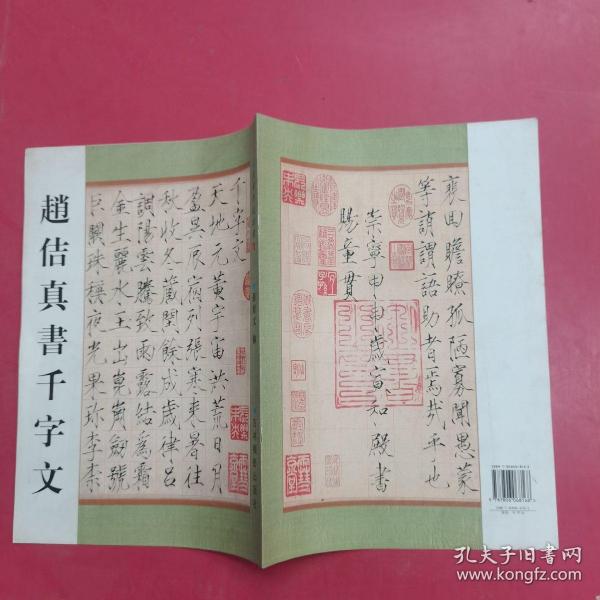 趙佶真書千字文
千字文
天地元黃宇宙洪荒日月
盈昃辰宿列張寒來暑往
秋收冬藏閏餘成歲律呂
調陽雲騰致雨露結為霜
金生麗水玉出崑崗劒號
巨闕珠稱夜光果珍李柰
裵回瞻眺孤陋寡聞愚蒙
等誚謂語助者焉哉乎也
崇寧甲申歲宣和殿書
賜童貫
孔夫子旧书网
www.kongfz.com